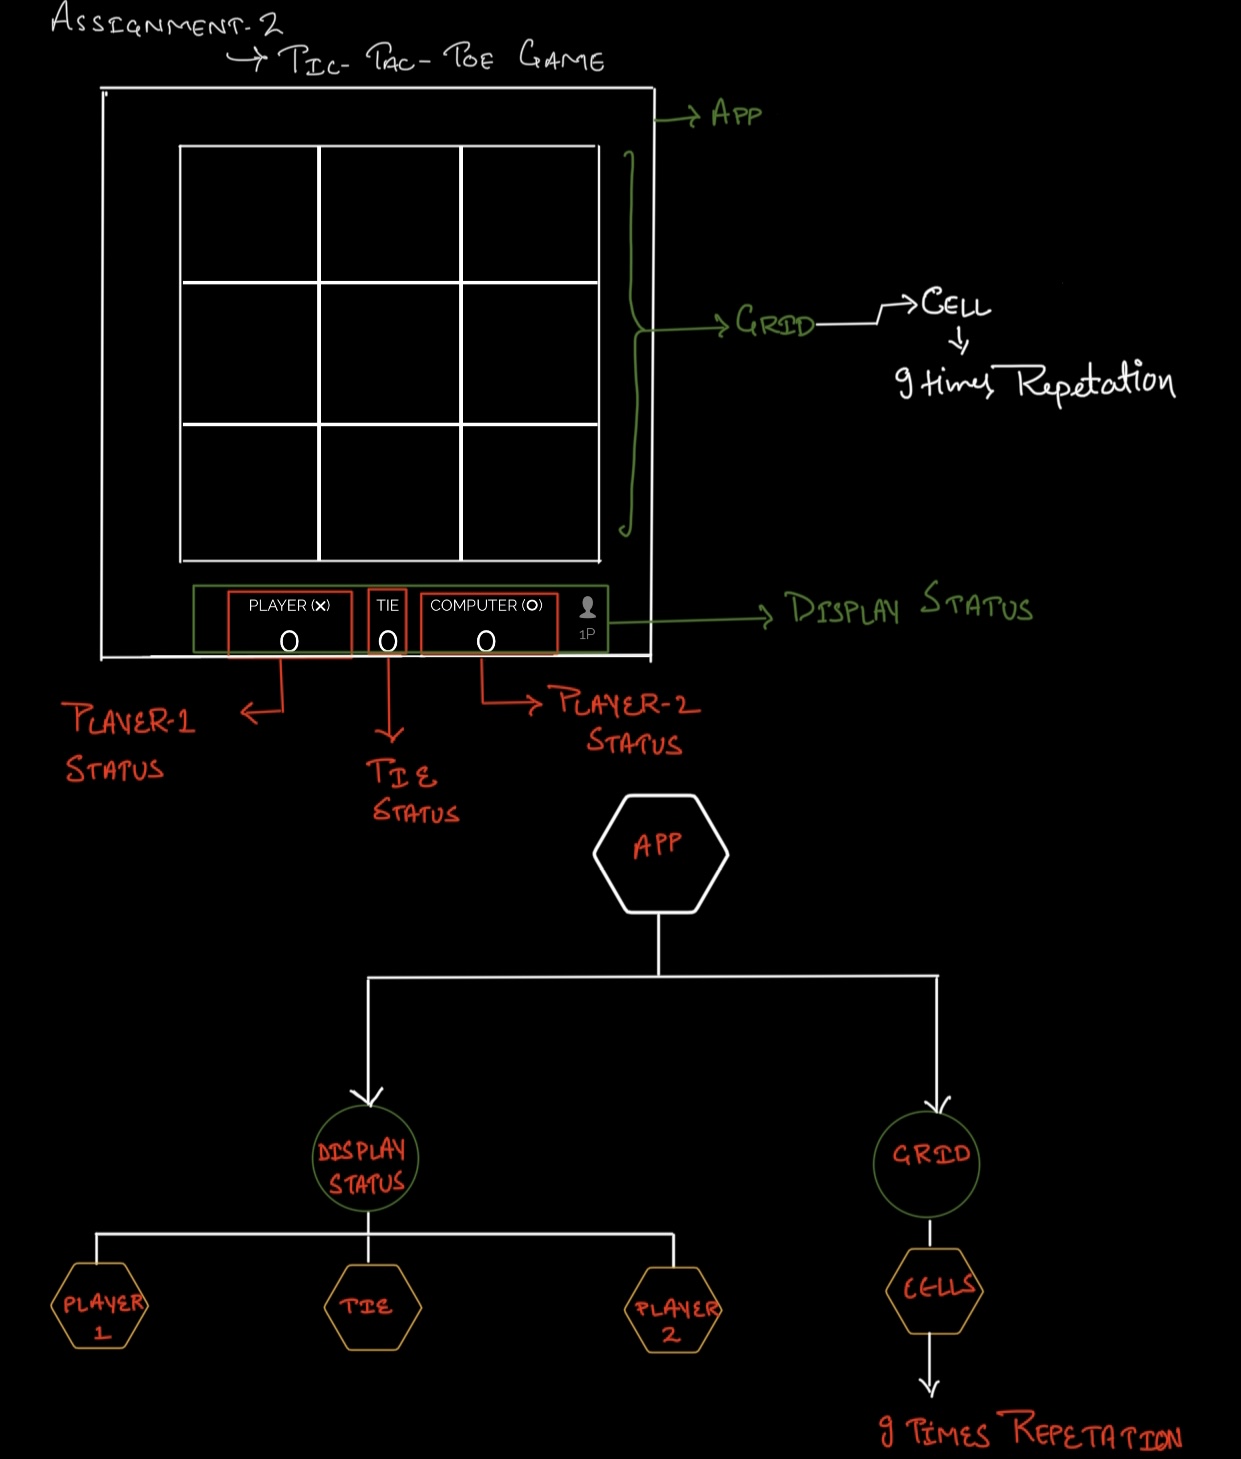 ASSIGNMENT-2
→ TIC-TAC-TOE GAME
→ APP
→ GRID → CELL
↓
9 times Repetation
PLAYER (X) TIE COMPUTER (O)
0 0 0 1P
→ DISPLAY STATUS
PLAYER-1
STATUS
TIE
STATUS
PLAYER-2
STATUS
APP
DISPLAY
STATUS
GRID
PLAYER
1
TIE
PLAYER
2
CELLS
9 TIMES REPETATION